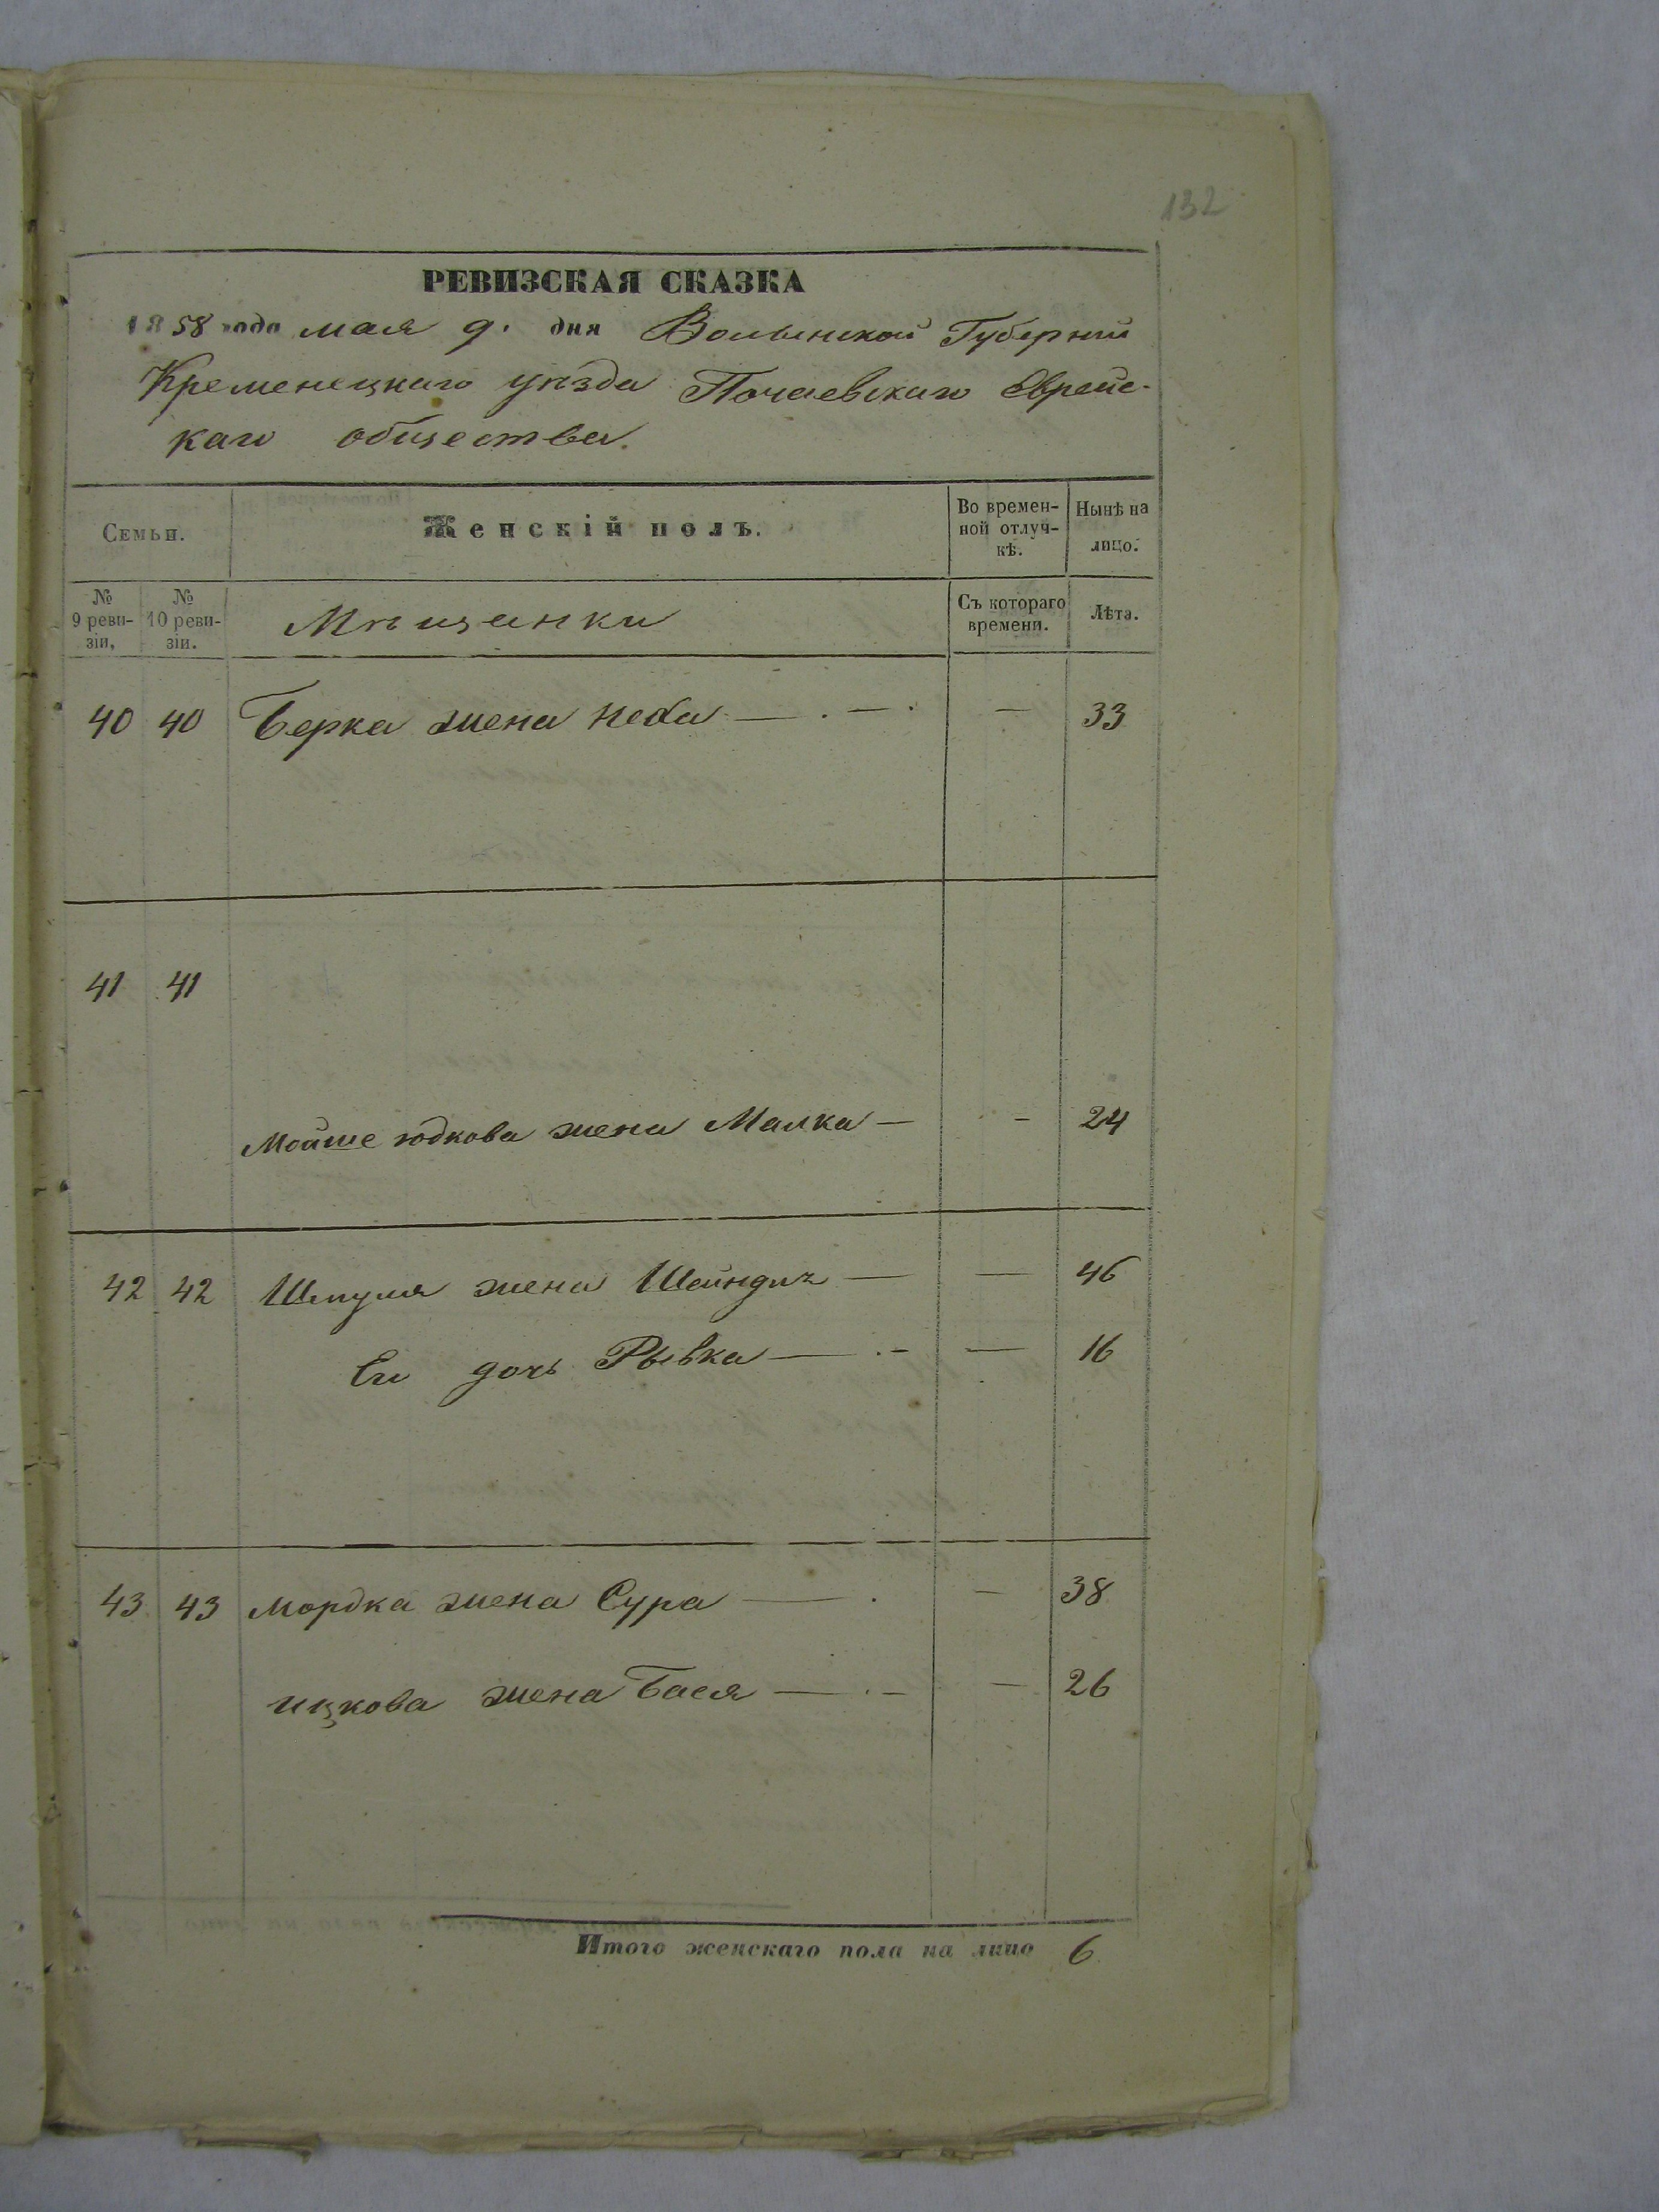 132
РЕВИЗСКАЯ СКАЗКА
1858 года мая 9. дня Волынской Губернии
Кременецкаго уѣзда Почаевскаго Еврейс-
каго общества.
Семьи.
Женскій полъ.
Во времен-
ной отлуч-
кѣ.
Нынѣ на
лицо.
№
9 реви-
зіи,
№
10 реви-
зіи.
Мѣщанки
Съ котораго
времени.
Лѣта.
40 40 Берка жена Неха — . — . — 33
41 41
Мойше юдкова жена Малка — - 24
42 42 Шмуля жена Шейндлъ — — 46
Ея дочь Рывка — . - — 16
43 43 мордка жена Сура — . — 38
ицкова жена Бася — . — — 26
Итого женскаго пола на лицо 6